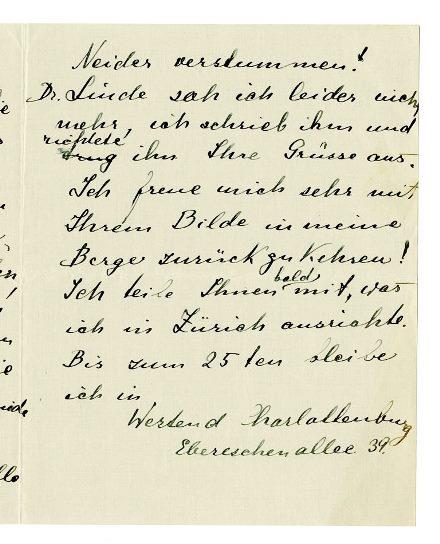 Neider verstummen!
Dr. Linde sah ich leider nicht
mehr, ich schrieb ihm und
richtete
trug ihm Ihre Grüsse aus.
Ich freue mich sehr mit
Ihrem Bilde in meine
Berge zurück zu kehren!
bald
Ich teile Ihnen mit, was
ich in Zürich ausrichte.
Bis zum 25ten bleibe
ich in
Westend Charlottenburg
Ebereschenallee 39.